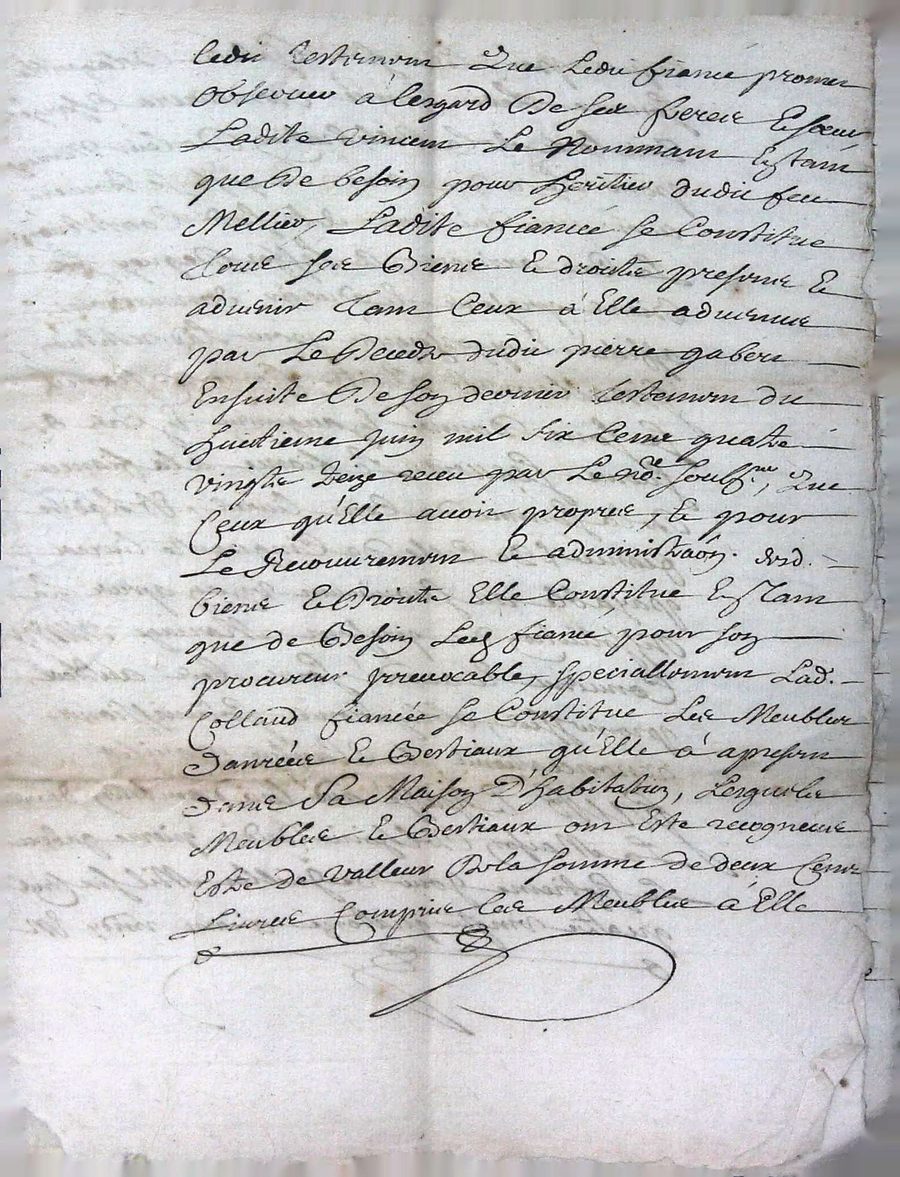 ledit testament Que Ledit fiancé promet
Observer à lesgard De ses freres & sœur
Ladite vincent Le Nommant Es tant
que De besoin pour heritier dudit feu
Mellier, Ladite fiancée se Constitue
Tous ses Biens & droits presens &
advenir Tant Ceux à Elle advenus
par Le Deceds dudit pierre gabert
Ensuite De son dernier testement du
huictieme juin mil six Cens quatre
vingts treize receu par Le no.re soubs.né, Que
Ceux qu'Elle avoit propres, & pour
Le Recouvrement & administraon. desd.
biens & Droits Elle Constitue Es Tant
que de Besoin Led. fiancé pour son
procureur Irrevocable, speciallement Lad.
Colland fiancée se Constitue Les Meubles
Danrées & Bestiaux qu'Elle à apresent
dans Sa Maison D'habitation, Lesquels
Meubles & Bestiaux ont Esté recogneus
Estre de valleur De la somme de deux Cens
Livres Compris les Meubles à Elle